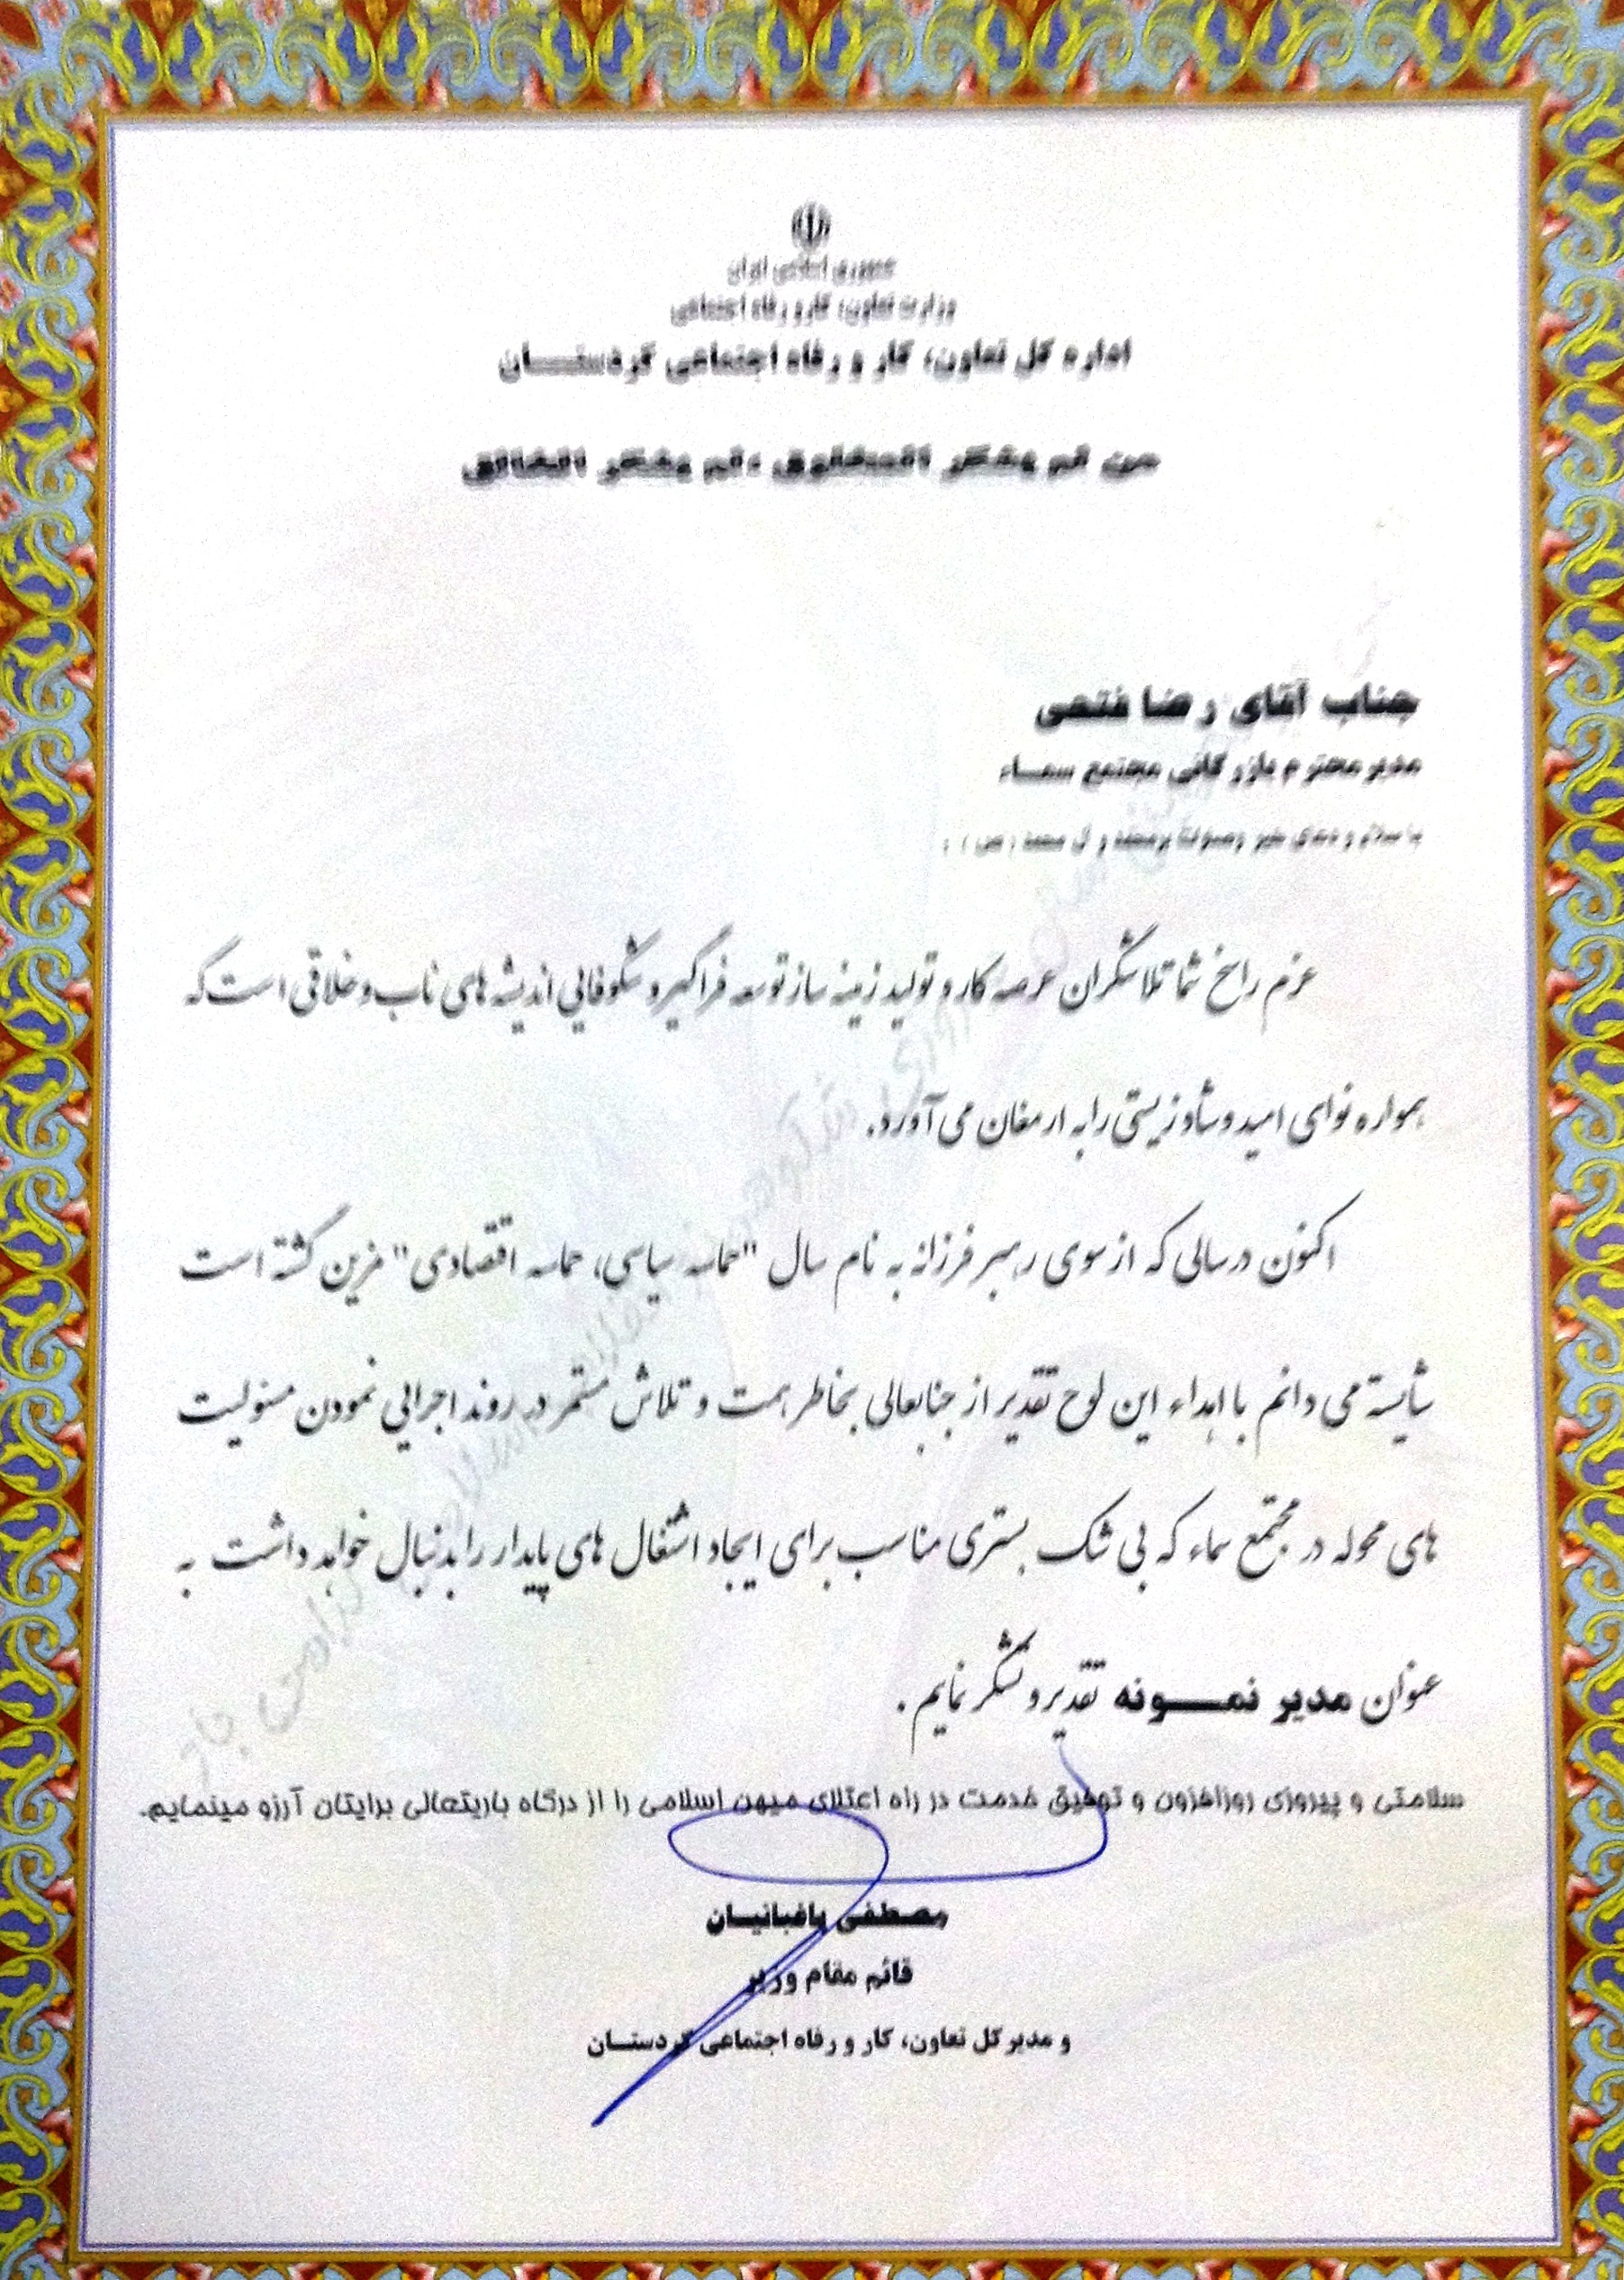 جمهوری اسلامی ایران
وزارت تعاون، کار و رفاه اجتماعی
اداره کل تعاون، کار و رفاه اجتماعی کردستـــان
من لم یشکر المخلوق ،لم یشکر الخالق
جناب آقای رضا فتحی
مدیر محترم بازرگانی مجتمع سمـاء
با سلام و دعای خیر وصلوات برمحمد و آل محمد (ص) ؛
عزم راسخ شما تلاشگران عرصه کار و تولید زمینه ساز توسعه فراگیر و شکوفایی اندیشه های ناب و خلاقی است که
همواره نوای امید و شاد زیستی را به ارمغان می آورد.
اکنون در سالی که از سوی رهبر فرزانه به نام سال "حماسه سیاسی، حماسه اقتصادی" مزین گشته است
شایسته می دانم با اهداء این لوح تقدیر از جنابعالی بخاطر همت و تلاش مستمر در روند اجرایی نمودن مسئولیت
های محوله در مجتمع سماء که بی شک بستری مناسب برای ایجاد اشتغال های پایدار را بدنبال خواهد داشت به
عنوان مدیر نمـــونه تقدیر و تشکر نمایم .
سلامتی و پیروزی روزافزون و توفیق خدمت در راه اعتلای میهن اسلامی را از درگاه باریتعالی برایتان آرزو مینمایم.
مصطفی باغبانیـان
قائم مقام وزیر
و مدیر کل تعاون، کار و رفاه اجتماعی کردستـان